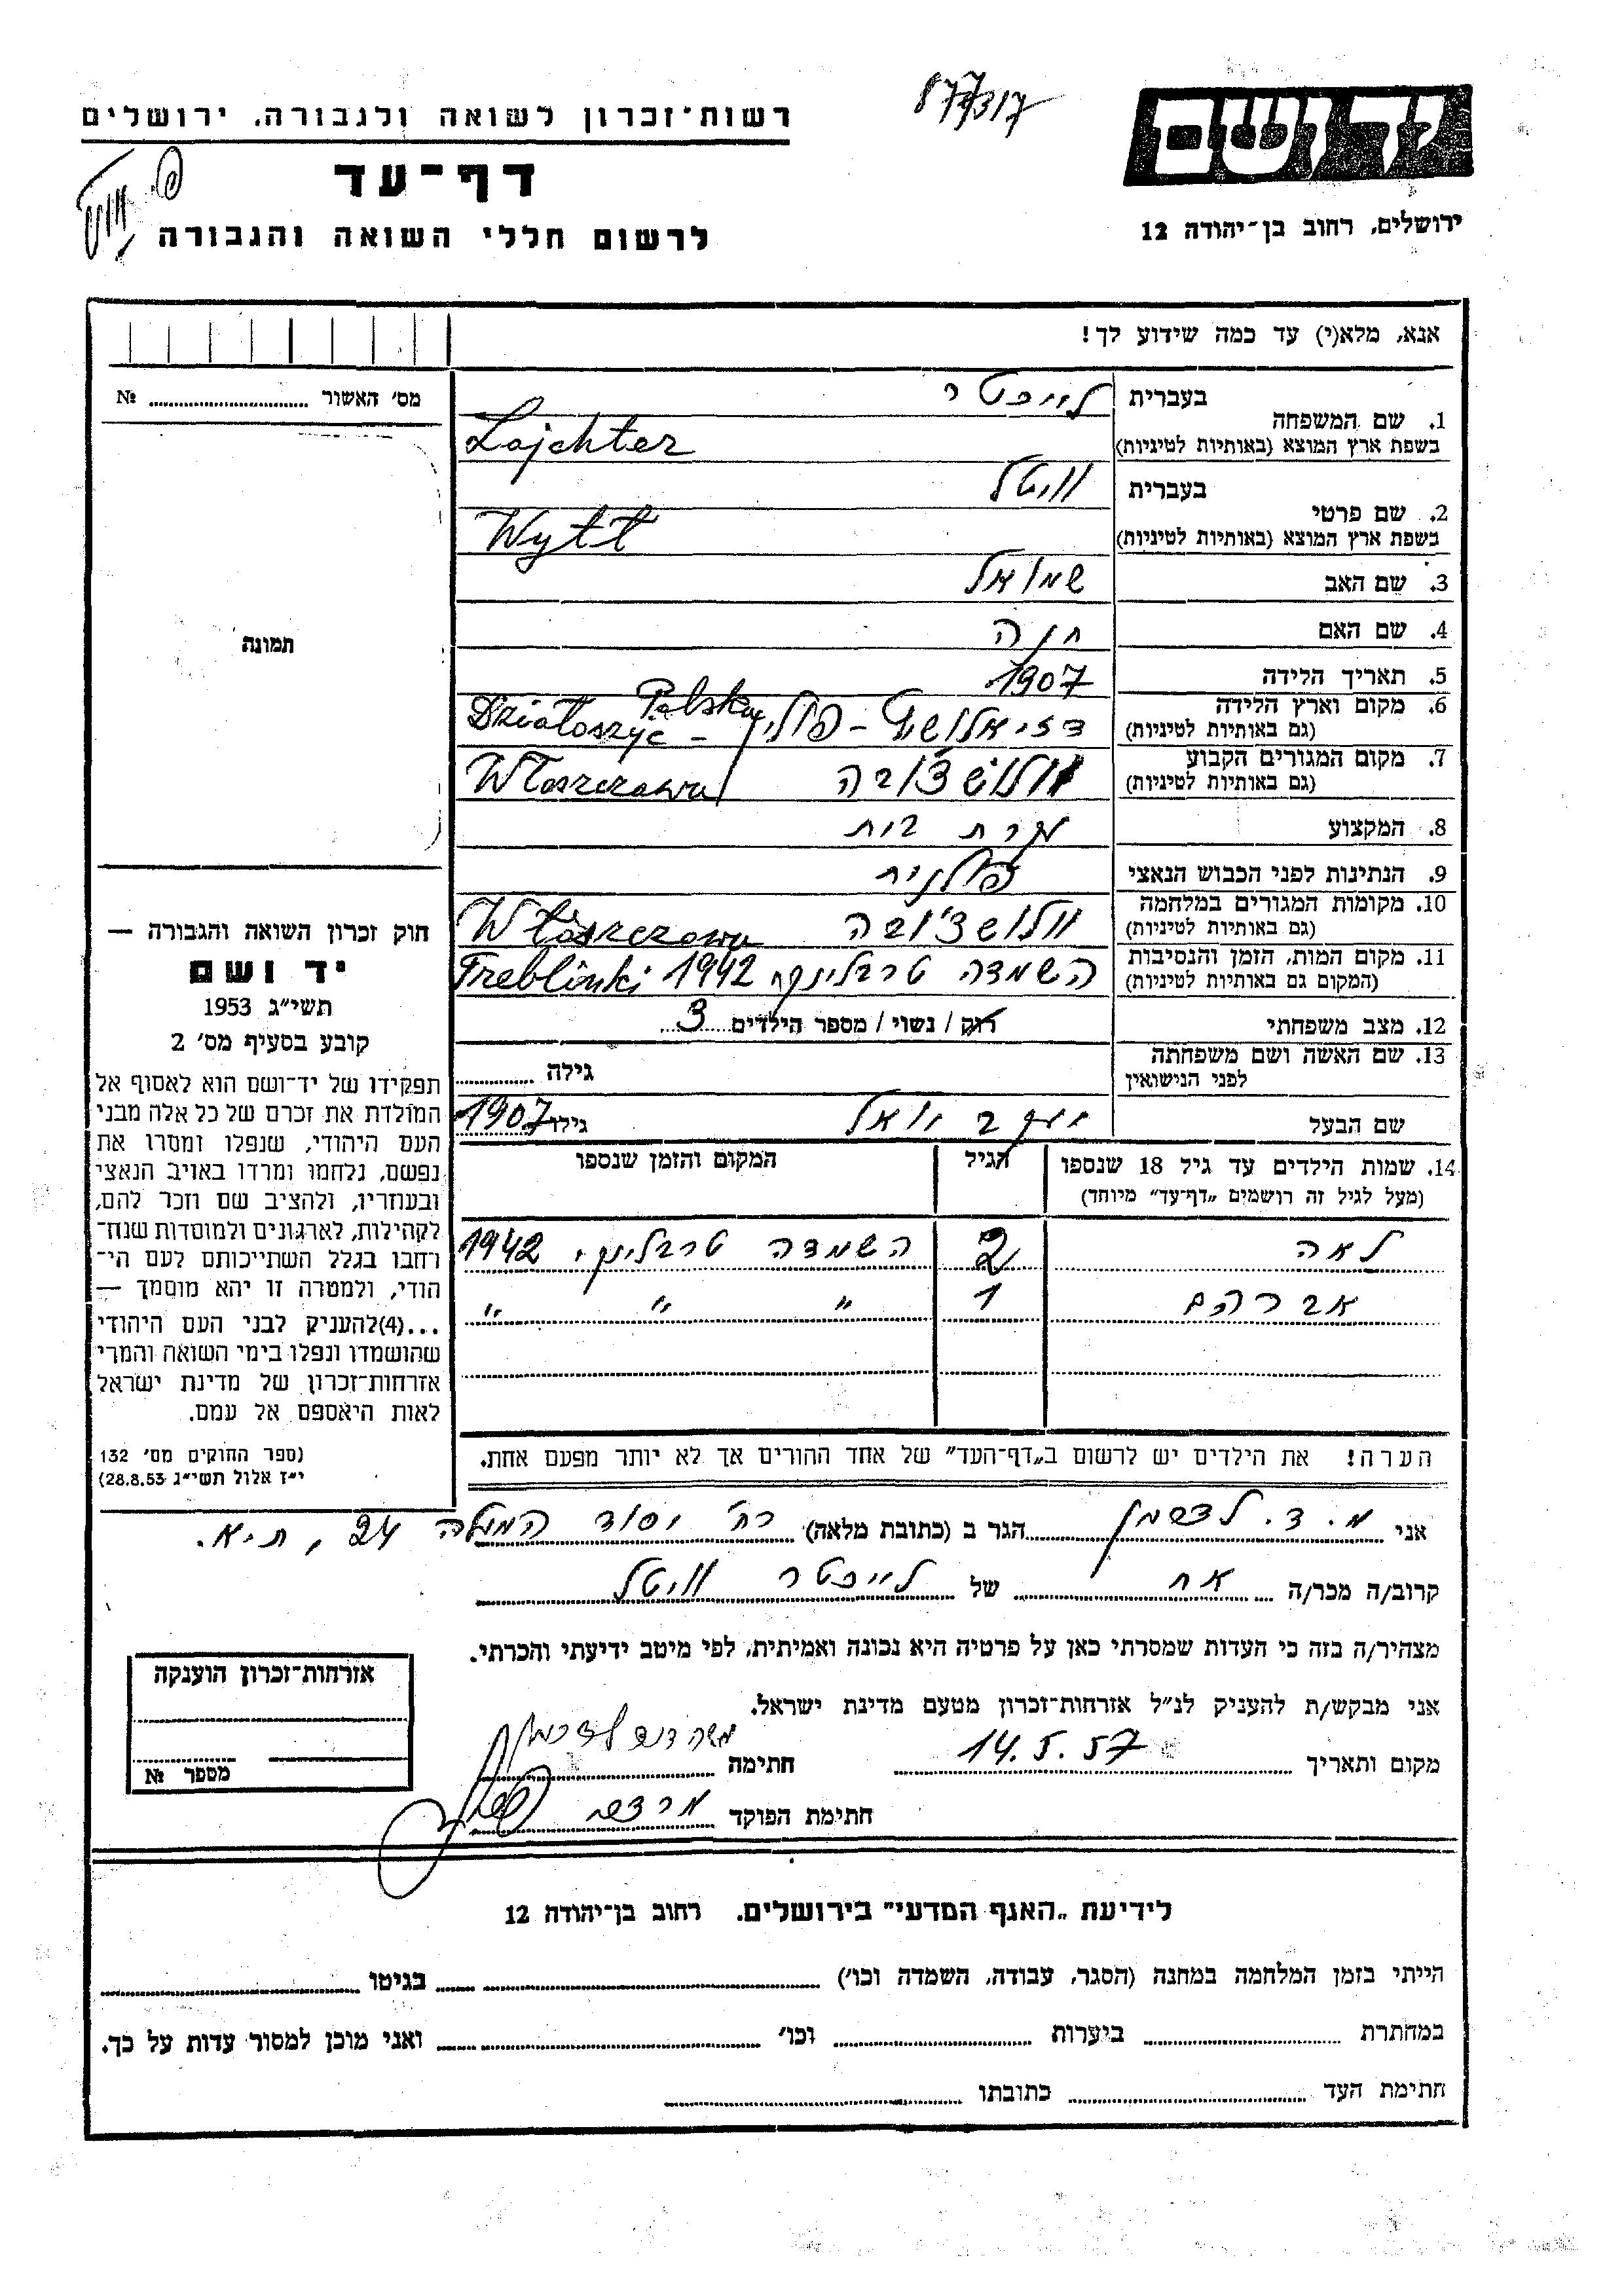 יד ושם
ירושלים, רחוב בן־יהודה 12
רשות־זכרון לשואה ולגבורה, ירושלים
דף־עד
לרשום חללי השואה והגבורה
אנא, מלא(י) עד כמה שידוע לך!
בעברית לייכטר
1. שם המשפחה
בשפת ארץ המוצא (באותיות לטיניות) Lajchter
בעברית וויטל
2. שם פרטי
בשפת ארץ המוצא (באותיות לטיניות) Wytt
3. שם האב שמואל
4. שם האם חנה
5. תאריך הלידה 1907
6. מקום וארץ הלידה
(גם באותיות לטיניות) Działoszyc - Polska
7. מקום המגורים הקבוע
(גם באותיות לטיניות) וולושצ'ובה Włoszczowa
8. המקצוע עקרת בית
9. הנתינות לפני הכבוש הנאצי פולנית
10. מקומות המגורים במלחמה
(גם באותיות לטיניות) וולושצ'ובה Włoszczowa
11. מקום המות, הזמן והנסיבות
(המקום גם באותיות לטיניות) השמדה טרבלינקי 1942 Treblinki
12. מצב משפחתי רוק / נשוי / מספר הילדים 3
13. שם האשה ושם משפחתה
לפני הנישואין גילה
שם הבעל גילו 1907
14. שמות הילדים עד גיל 18 שנספו הגיל המקום והזמן שנספו
(מעל לגיל זה רושמים „דף־עד״ מיוחד)
לאה 2 השמדה טרבלינקי 1942
אברהם 1 ״ ״ ״
הערה! את הילדים יש לרשום ב„דף־העד״ של אחד ההורים אך לא יותר מפעם אחת.
מס׳ האשור №
תמונה
חוק זכרון השואה והגבורה —
יד ושם
תשי״ג 1953
קובע בסעיף מס׳ 2
תפקידו של יד־ושם הוא לאסוף אל
המולדת את זכרם של כל אלה מבני
העם היהודי, שנפלו ומסרו את
נפשם, נלחמו ומרדו באויב הנאצי
ובעוזריו, ולהציב שם וזכר להם,
לקהילות, לארגונים ולמוסדות שנח־
רחבו בגלל השתייכותם לעם הי־
הודי, ולמטרה זו יהא מוסמך —
...(4)להעניק לבני העם היהודי
שהושמדו ונפלו בימי השואה והמרי
אזרחות־זכרון של מדינת ישראל
לאות היאספם אל עמם.
(ספר החוקים מס׳ 132
י״ז אלול תשי״ג 28.8.53)
אני מ. ד. הגר ב (כתובת מלאה) רח׳ יסוד המעלה 24, ת״א.
קרוב/ה מכר/ה אח של לייכטר וויטל
מצהיר/ה בזה כי העדות שמסרתי כאן על פרטיה היא נכונה ואמיתית, לפי מיטב ידיעתי והכרתי.
אני מבקש/ת להעניק לנ״ל אזרחות־זכרון מטעם מדינת ישראל.
מקום ותאריך 14.5.57 חתימה משה דוד
חתימת הפוקד
אזרחות־זכרון הוענקה
מספר №
לידיעת „האגף המדעי״ בירושלים, רחוב בן־יהודה 12
הייתי בזמן המלחמה במחנה (הסגר, עבודה, השמדה וכו׳) בגיטו
במחתרת ביערות וכו׳ ואני מוכן למסור עדות על כך.
חתימת העד כתובתו